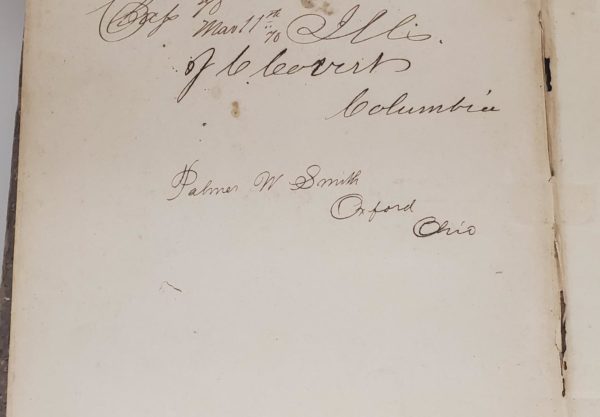 Mar 11th 70 Ills.
J C Covert
Columbia
Palmer W Smith
Oxford
Ohio